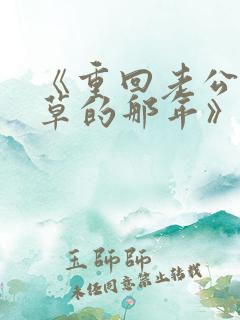 《重回老公
草的那年》
玉師師
未经同意禁止转载